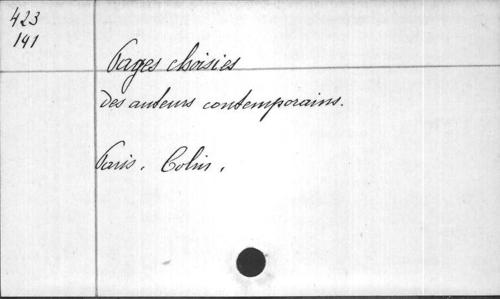 423
141
Pages choisies
des auteurs contemporains.
Paris. Colin.